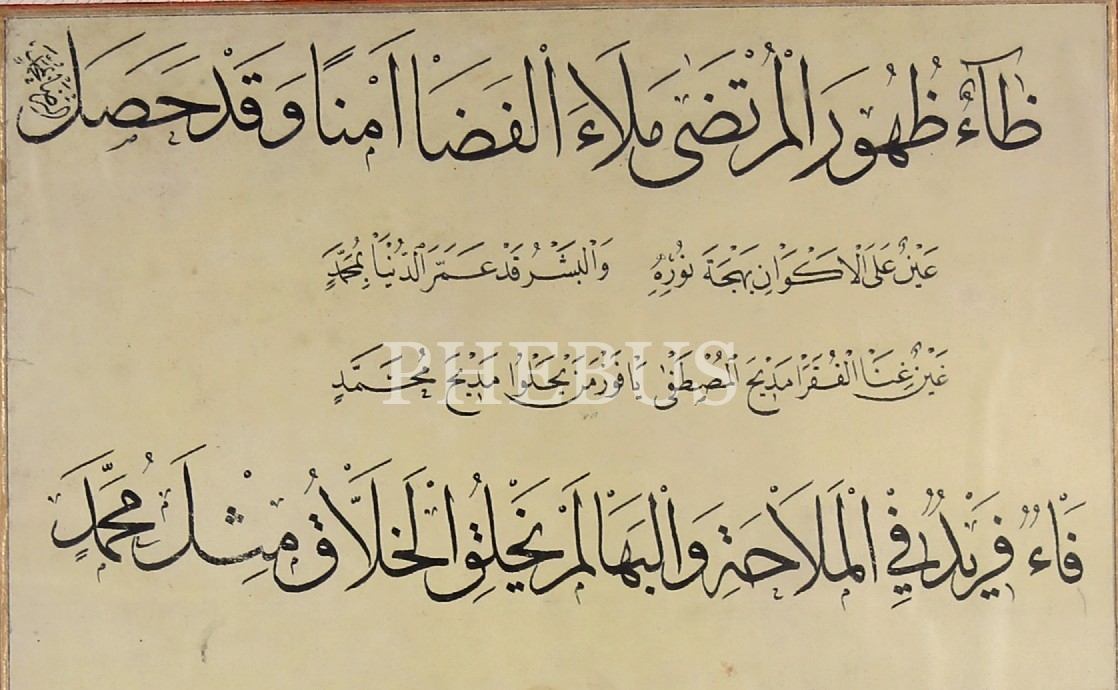 ظَآءٌ ظُهُورَ الْمُرْتَضٰى مَلَاءَ الْفَضَا اَمْنًا وَقَدْ حَصَلَ
عَيْنٌ عَلَى الْاَكْوَانِ بَهْجَةَ نُورِهِ وَالْبَشْرُ قَدْ عَمَّرَ الدُّنْيَا بِمُحَمَّدٍ
غَيْنٌ غِنَا الْفُقَرَا مَدِيْحَ الْمُصْطَفٰى يَا فَوْزَ مَنْ يَجْلُوا مَدِيْحَ مُحَمَّدٍ
PHEBUS
فَاءٌ فَرِيْدٌ فِي الْمَلَاحَةِ وَالْبَهَا لَمْ يَخْلِقُ الْخَلَّاقُ مِثْلَ مُحَمَّدٍ